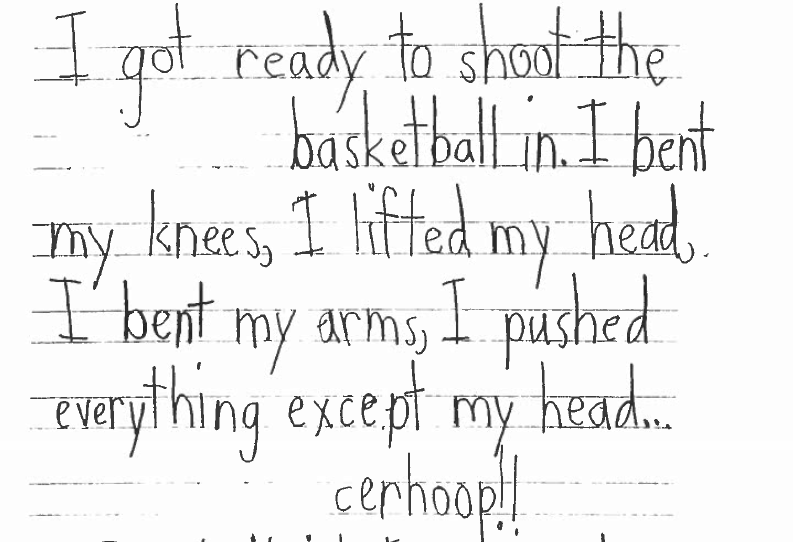 I got ready to shoot the
basketball in. I bent
my knees, I lifted my head,
I bent my arms, I pushed
everything except my head...
cerhoop!!